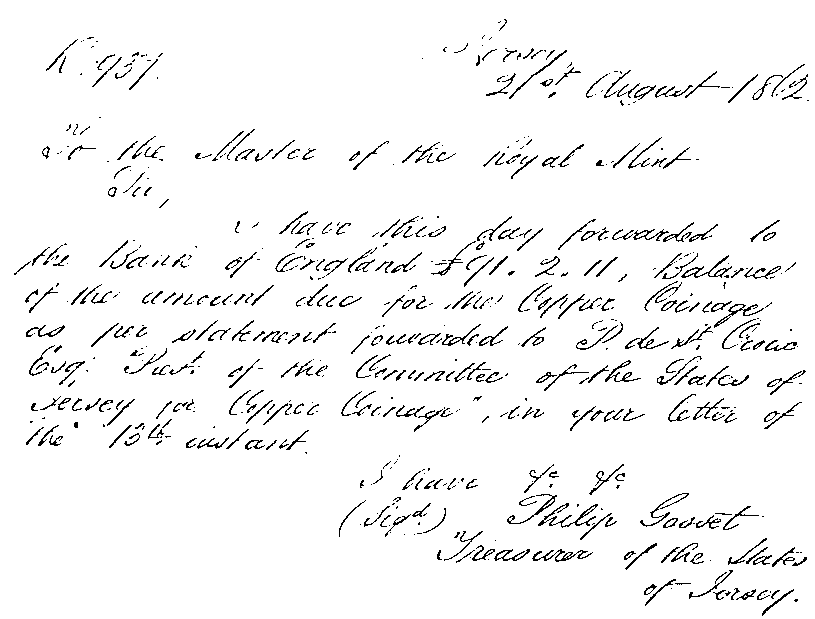 K. 937.
Jersey
21st August 1862.
To the Master of the Royal Mint
Sir,
I have this day forwarded to
the Bank of England £91. 2. 11, Balance
of the amount due for the Copper Coinage
as per statement forwarded to P. de St. Croix
Esq. "Prest. of the Committee of the States of
Jersey for Copper Coinage", in your letter of
the 13th instant.
I have &c. &c.
(Sigd.) Philip Gosset
"Treasurer of the States
of Jersey.